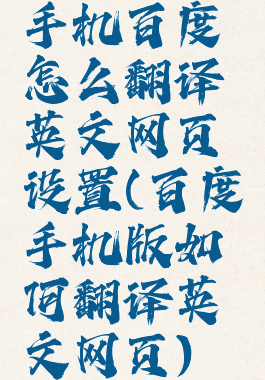 手机百度
怎么翻译
英文网页
设置(百度
手机版如
何翻译英
文网页)